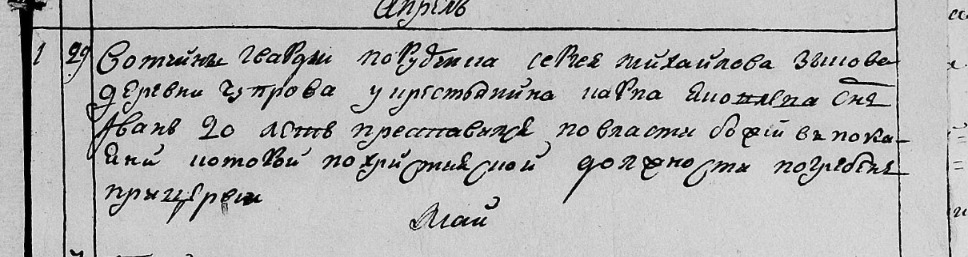 Апрель
1 29 Вотчины гвардии порутчика Сергея Михайлова
деревни Чупрова у крестьянина Карпа сн̃ъ
Иванъ 20 летъ преставился по власти божїй в пока-
янии которой по християнской должности погребенъ
при церкви
Май